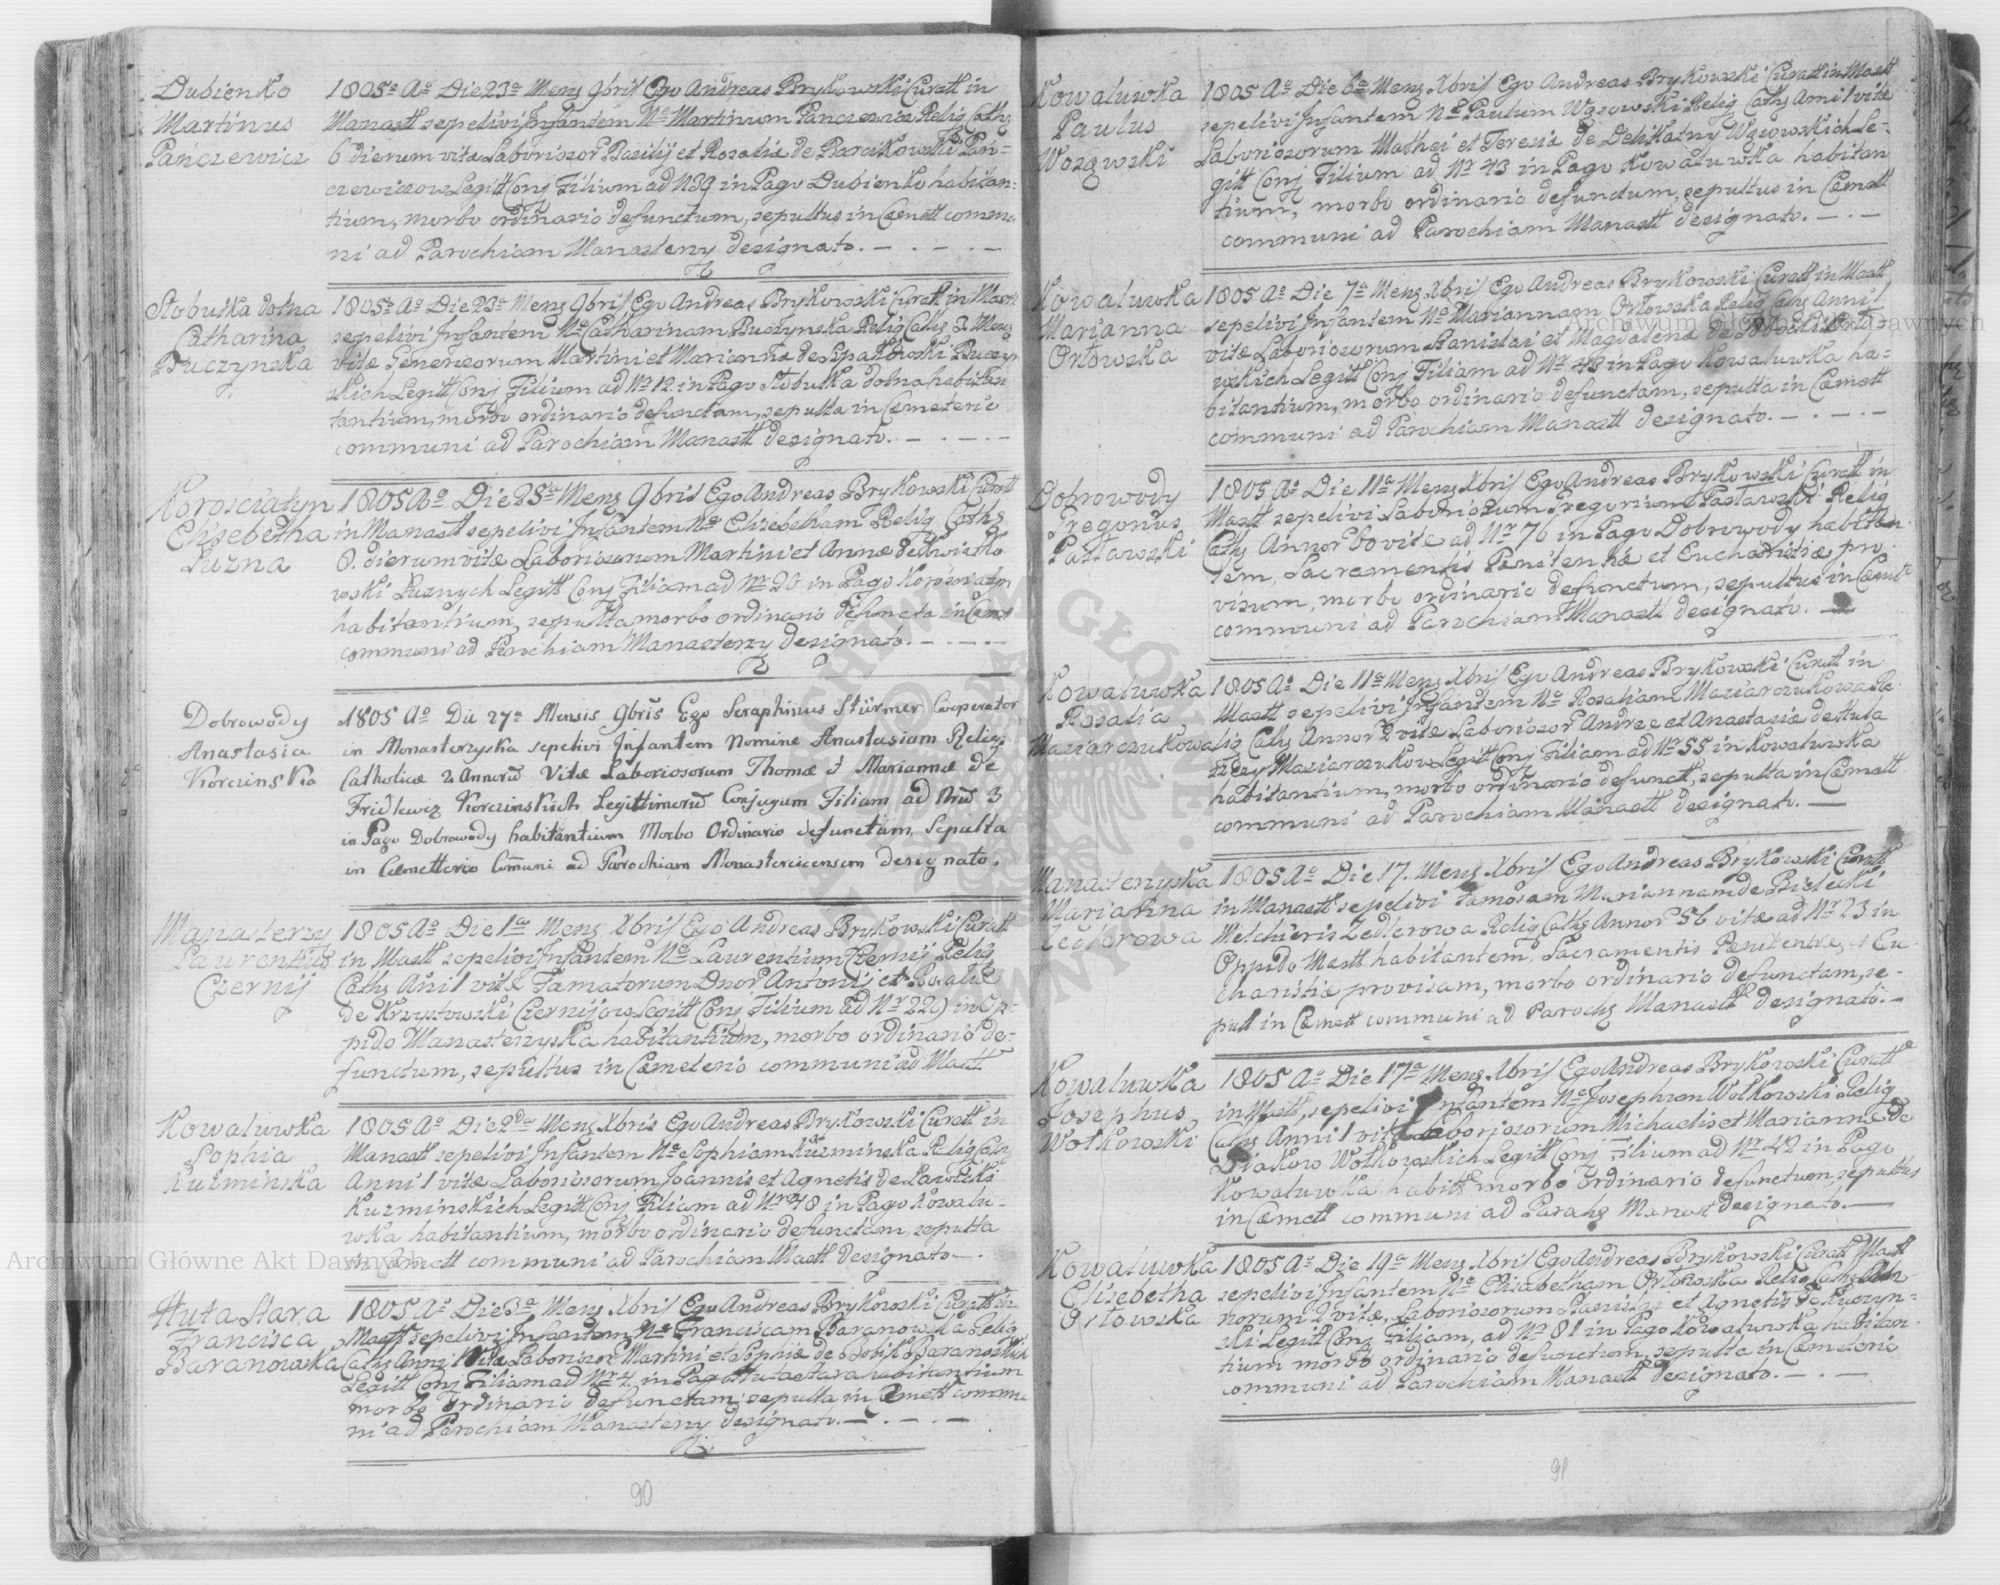 Dubienko
Martinus
Pańczewicz
1805o Ao Die 23a Mens 9bris Ego Andreas Brykowski Curatt in
Manastt sepelivi Infantem Ne Martinum Panczewicz Relig Cath
6 dierum vitæ Laborioror Basilij et Rosaliæ de Barcikowski Pan=
czewiczow Legitt Conj Filium ad N39 in Pago Dubienko habitan=
tium, morbo ordinario defunctum, sepultus in Cæmett commu
ni ad Parochiam Manasterzy designato. — . — . —
Słobutka dolna
Catharina
Buczynska
1805o Ao Die 23a Mens 9bris Ego Andreas Brykowski Curatt in Manstt
sepelivi Infantem Ne Catharinam Buczynska Relig Cath 3. Mens
vitæ Generosorum Martini et Mariannæ de Buczyn
skich Legitt Conj Filium ad Nr 12. in Pago Słobutka dolna habitan
tantium, morbo ordinario defunctam, sepulta in Cemeterio
communi ad Parochiam Manastt designato. — . — . —
Korosciatyn
Elisebetha
Luzna
1805 Ao Die 25ta Mens 9bris Ego Andreas Brykowski Curatt
in Manast sepelivi Infantem Ne Elisebetham Relig Cath
8. dierum vitæ Laboriosorum Martini et Annæ de Kwiatko
wski Luznych Legitt Conj Filiam ad Nr 20 in Pago Korosciatyn
habitantium, sepulta morbo ordinario defuncta in Cæmet
communi ad Parochiam Manasterzy designato. — . — . —
Dobrowody
Anastasia
Korczinskia
1805 Ao Die 27a Mensis 9bris Ego Seraphinus Stürmer Cooperator
in Monasterzyska sepelivi Infantem Nomine Anastasiam Religi
Catholicæ 2 Annorū Vitæ Laboriosorum Thomæ et Mariannæ de
Fridlewiz Korczinskich Legittimorū Conjugum Filiam ad Nrū 3
in Pago Dobrowody habitantium Morbo Ordinario defunctam, Sepulta
in Cæmetterio Comuni ad Parochiam Monasterciensem designato.
Manasterzy
Laurentius
Czernij
1805 Ao Die 1a Mens Xbris Ego Andreas Brykowski Curatt
in Mastt sepelivi Infantem Ne Laurentium Czernij Relig
Cath Ani 1 vitæ Famatorum Dnor Antonij et Rosaliæ
de Krzystowski Czernijow Legitt Conj Filium ad Nr 229 in Op=
pido Manasterzyska habitantium, morbo ordinario de=
functum, sepultus in Cæmeterio communi ad Mastt
Kowaluwka
Sophia
Kuzminska
1805 Ao Die 2da Mens Xbris Ego Andreas Brykowski Curatt in
Manastt sepelivi Infantem Ne Sophiam Kuzminska Relig Cath
Anni 1 vitæ Laboriosorum Joannis et Agnetis de Lawocki
Kuzminskich Legitt Conj Filiam ad Nr 48 in Pago Kowalu=
wka habitantium, morbo ordinario defunctam, sepulta
in Cæmett communi ad Parochiam Mastt designato. — .
Huta Stara
Francisca
Baranowska
1805 Ao Die 3a Mens Xbris Ego Andreas Brykowski Curatt in
Mastt sepelivi Infantem Ne Franciscam Baranowska Relig
Cath Anni 1 vitæ Laborioror Martini et Sophiæ de Baranowskich
Legitt Conj Filiam ad Nr 4 in Pago Huta Stara habitantium
morbo Ordinario defunctam, sepulta in Cæmett commu
ni ad Parochiam Manasterzy designato. — . — . —
90
Kowaluwka
Paulus
Wozgwski
1805 Ao Die 6a Mens Xbris Ego Andreas Brykowski Curatt in Mastt
sepelivi Infantem Ne Paulum Wzgowski Relig Cath Ami 1 vitæ
Laboriosorum Mathei et Teresiæ de Delikatny Wzgowskich Le=
gitt Conj Filium ad Nr 43 in Pago Kowaluwka habitan
tium, morbo ordinario defunctum, sepultus in Cæmett
communi ad Parochiam Manastt designato. — . —
Kowaluwka
Marianna
Orłowska
1805 Ao Die 7a Mens Xbris Ego Andreas Brykowski Curatt in Mastt
sepelivi Infantem Ne Mariannam Orłowska Relig Cath Anni 1
vitæ Laboriosorum Stanislai et Magdalenæ de Orło=
wskich Legitt Conj Filiam ad Nr 43 in Pago Kowaluwka ha=
bitantium, morbo ordinario defunctam, sepulta in Cæmett
communi ad Parochiam Manastt designato. — . — . —
Dobrowody
Gregorius
Pastawski
1805 Ao Die 11a Mens Xbris Ego Andreas Brykowski Curatt in
Mastt sepelivi Laboriosum Gregorium Pastawski Relig
Cath Annor 60 vitæ ad Nr 76 in Pago Dobrowody habitan
tem, Sacramentis Pœnitentiæ et Eucharistiæ pro
visum, morbo ordinario defunctum, sepultus in Cæmtt
communi ad Parochiam Manastt designato. —
Kowaluwka
Rosalia
Maziarczukowa
1805 Ao Die 11a Mens Xbris Ego Andreas Brykowski Curatt in
Mastt sepelivi Infantem Ne Rosaliam Maziarczukowa Re
lig Cath Annor 2 vitæ Laborioror Andreæ et Anastasiæ de Hula
Maziarczukow Legitt Conj Filiam ad Nr 55 in Kowaluwka
habitantium, morbo ordinario defunctt, sepulta in Cæmett
communi ad Parochiam Manastt designato. —
Manasterzyska
Marianna
Zedlerowa
1805 Ao Die 17. Mens Xbris Ego Andreas Brykowski Curatt
in Manastt sepelivi Famosam Mariannam de Bielecki
Melchieris Zedlerowa Relig Cath Annor 56 vitæ ad Nr 23 in
Oppido Mastt habitantem, Sacramentis Pœnitentiæ, et Eu=
charistiæ provisam, morbo ordinario defunctam, se=
pult in Cæmett communi ad Paroch Manastt designato. —
Kowaluwka
Josephus
Wołkowski
1805 Ao Die 17a Mens Xbris Ego Andreas Brykowski Curatt
in Mastt, sepelivi Infantem Ne Josephum Wołkowski Relig
Cath Anni 1 vitæ Laboriosorum Michaelis et Mariannæ de
Diakow Wołkowskich Legitt Conj Filium ad Nr 42 in Pago
Kowaluwka habitt morbo Ordinario defunctum, sepultus
in Cæmett communi ad Paroh Manast designato. —
Kowaluwka
Elisebetha
Orłowska
1805 Ao Die 19a Mens Xbris Ego Andreas Brykowski Curatt Mastt
sepelivi Infantem Ne Elisabetham Orłowska Relig Cath An
norum 2 vitæ, Laboriosorum Stanislai et Agnetis de Kuczyn=
ski Legitt Conj Filiam, ad Nr 81 in Pago Kowaluwka habitan=
tium morbo ordinario defunctum, sepulta in Cæmeterio
communi ad Parochiam Manastt designato. — . —
91
Archiwum Główne Akt Dawnych
Archiwum Główne Akt Dawnych